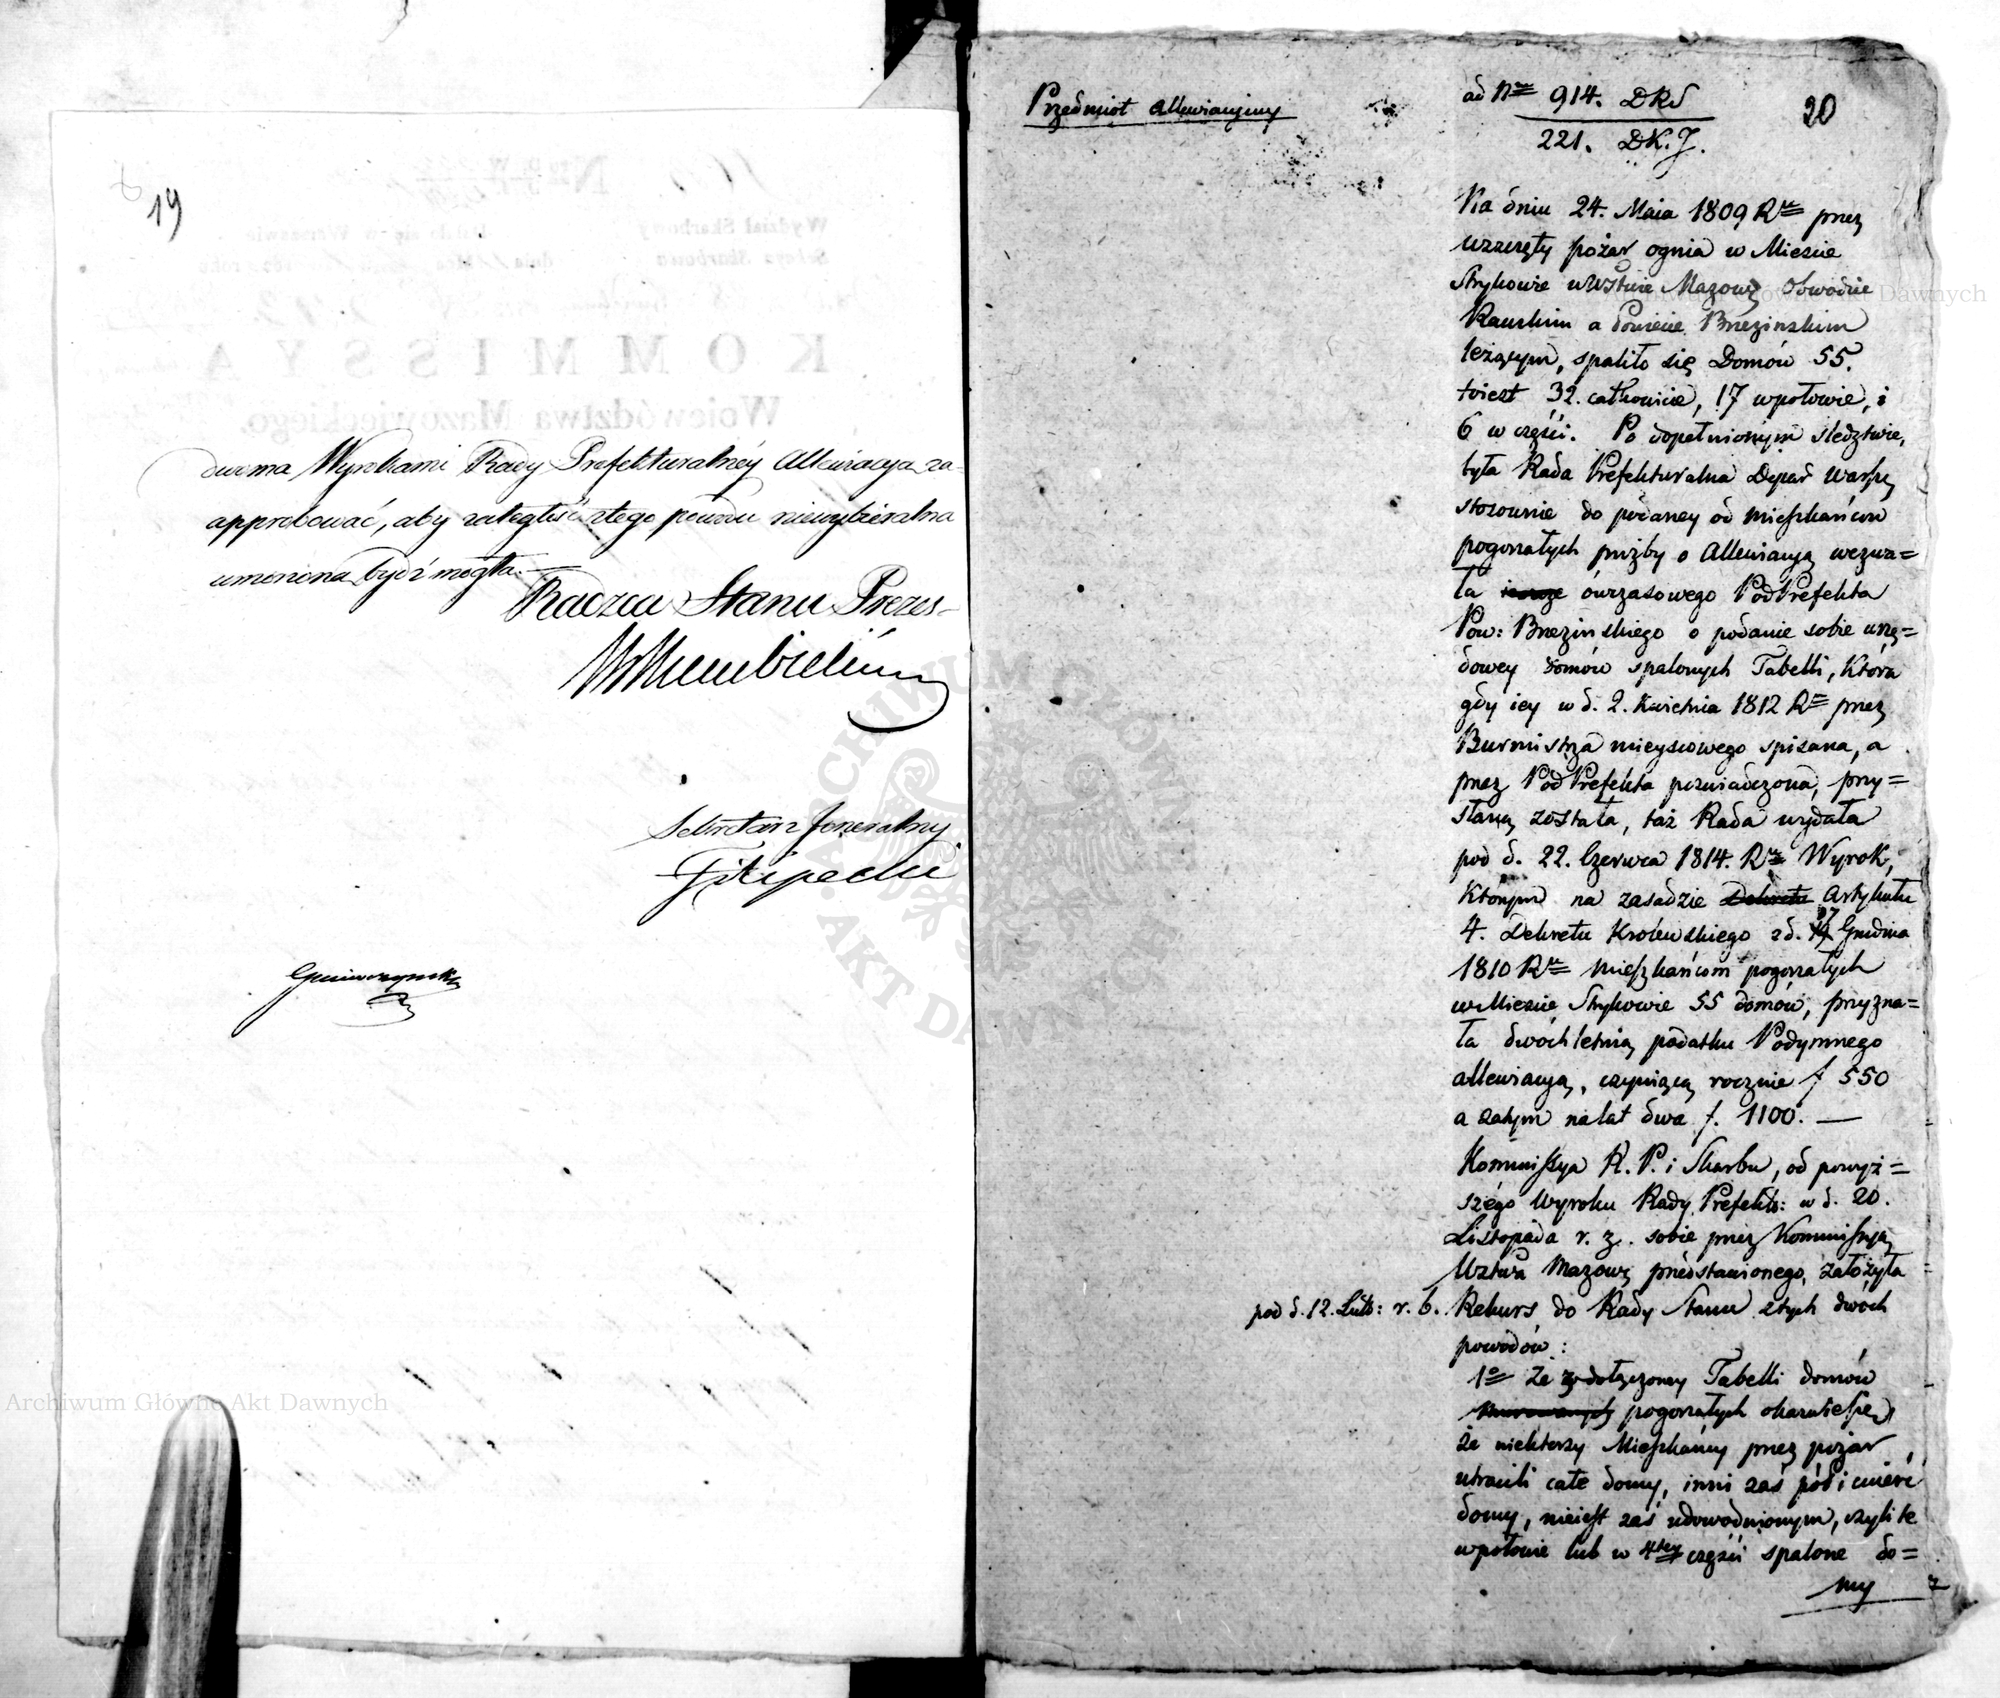 19
dwoma Wyrokami Rady Prefekturalnéy Allewiacya za-
approbować, aby zaległość ztego powodu niewybieralna
umorzona bydź mogła.
Radzca Stanu Prezes
Sekretarz Jeneralny
Filipecki
Przedmiot Allewiacyiny
ad Nrum 914. DKS
221. DK.J.
20
Na dniu 24. Maia 1809 Rku przez
wszczęty pożar ognia w Mieście
Strykowie w Wstwie Mazow: Obwodzie
Rawskim a Powiecie Brzezińskim
leżącym, spaliło się Domów 55.
toiest 32. całkowicie, 17 wpołowie, i
6 w części. Po dopełnionym śledztwie,
była Rada Prefekturalna Depar Warsz
stosownie do podaney od Mieszkańców
pogorzałych prożby o Allewiacyą wezwa=
ła ówczasowego PodPrefekta
Pow: Brzezinskiego o podanie sobie urzę=
dowey domów spalonych Tabelli, która
gdy iey w d. 2. Kwietnia 1812 R przez
Burmistrza mieyscowego spisana, a
przez PodPrefekta poświadczona, przy=
słaną została, taż Rada wydała
pod d. 22. Czerwca 1814. Rku Wyrok,
którym na zasadzie Dekretu Artykułu
4. Dekretu Królewskiego z d. 17 Grudnia
1810 Rku Mieszkańcom pogorzałych
w Mieście Strykowie 55 domów, przyzna=
ła dwóchletnią podatku Podymnego
allewiacyą, czyniącą rocznie f 550
a zatym na lat dwa f. 1100. —
Kommissya R. P. i Skarbu, od powyż=
szégo Wyroku Rady Prefekt: w d. 20.
Listopada r. z. sobie przez Kommissyą
Wztwa Mazow: przedstawionego, założyła
pod d. 12. Lut: r. b. Rekurs do Rady Stanu ztych dwóch
powodów:
1o Że z dołączoney Tabelli domów
pogorzałych okazuie się
że niektorzy Mieszkańcy przez pożar
utracili całe domy, inni zaś pół i ćwierć
domy, nieiest zaś udowodnionym, czyli te
wpołowie lub w 4tey części spalone do=
my
Archiwum Główne Akt Dawnych
Archiwum Główne Akt Dawnych
ARCHIWUM GŁÓWNE AKT DAWNYCH